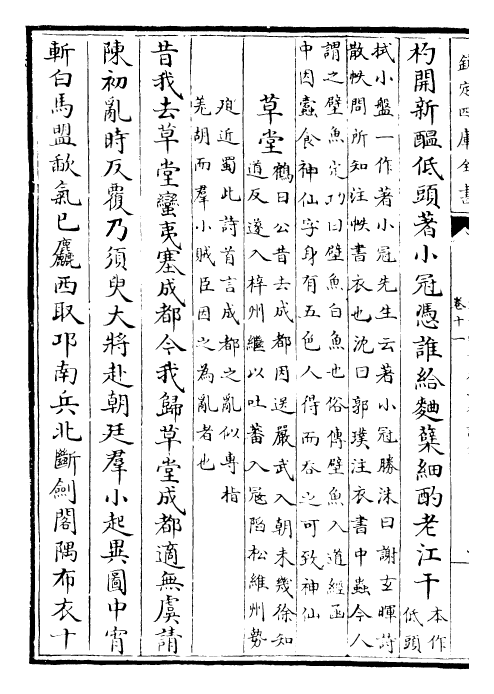 欽定四庫全書
卷十一
杓開新醖低頭著小冠憑誰給麯糵細酌老江干本作
低頭
拭小盤一作著小冠先生云著小冠勝洙曰謝玄暉詩
散帙問所知注帙書衣也沈曰郭璞注衣書中蟲今人
謂之壁魚定功曰壁魚白魚也俗傳壁魚入道經函
中因蠧食神仙字身有五色人得而吞之可致神仙
草堂鶴曰公昔去成都因送嚴武入朝未幾徐知
道反遂入梓州繼以吐蕃入冦陷松維州勢
殆近蜀此詩首言成都之亂似專指
羌胡而羣小賊臣因之為亂者也
昔我去草堂蠻夷塞成都今我歸草堂成都適無虞請
陳初亂時反覆乃須臾大將赴朝廷羣小起異圖中宵
斬白馬盟歃氣已麤西取邛南兵北斷劍閣隅布衣十